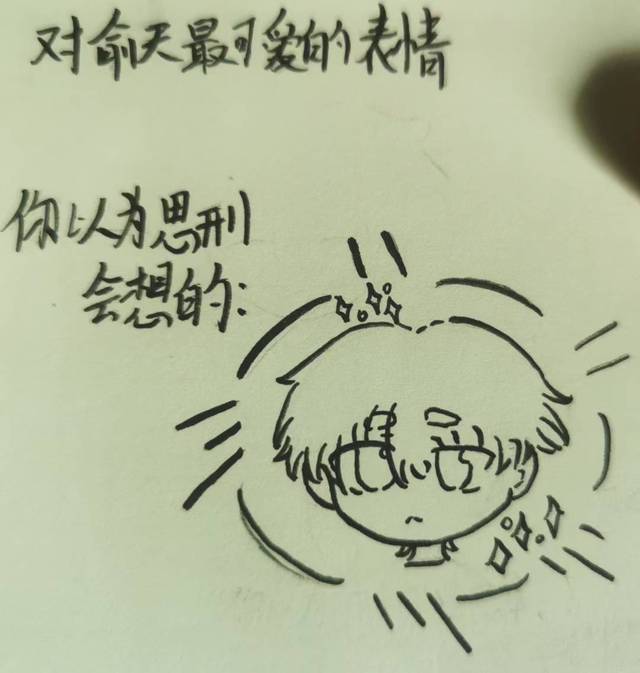 对俞天最可爱的表情
你以为思刑
会想的: